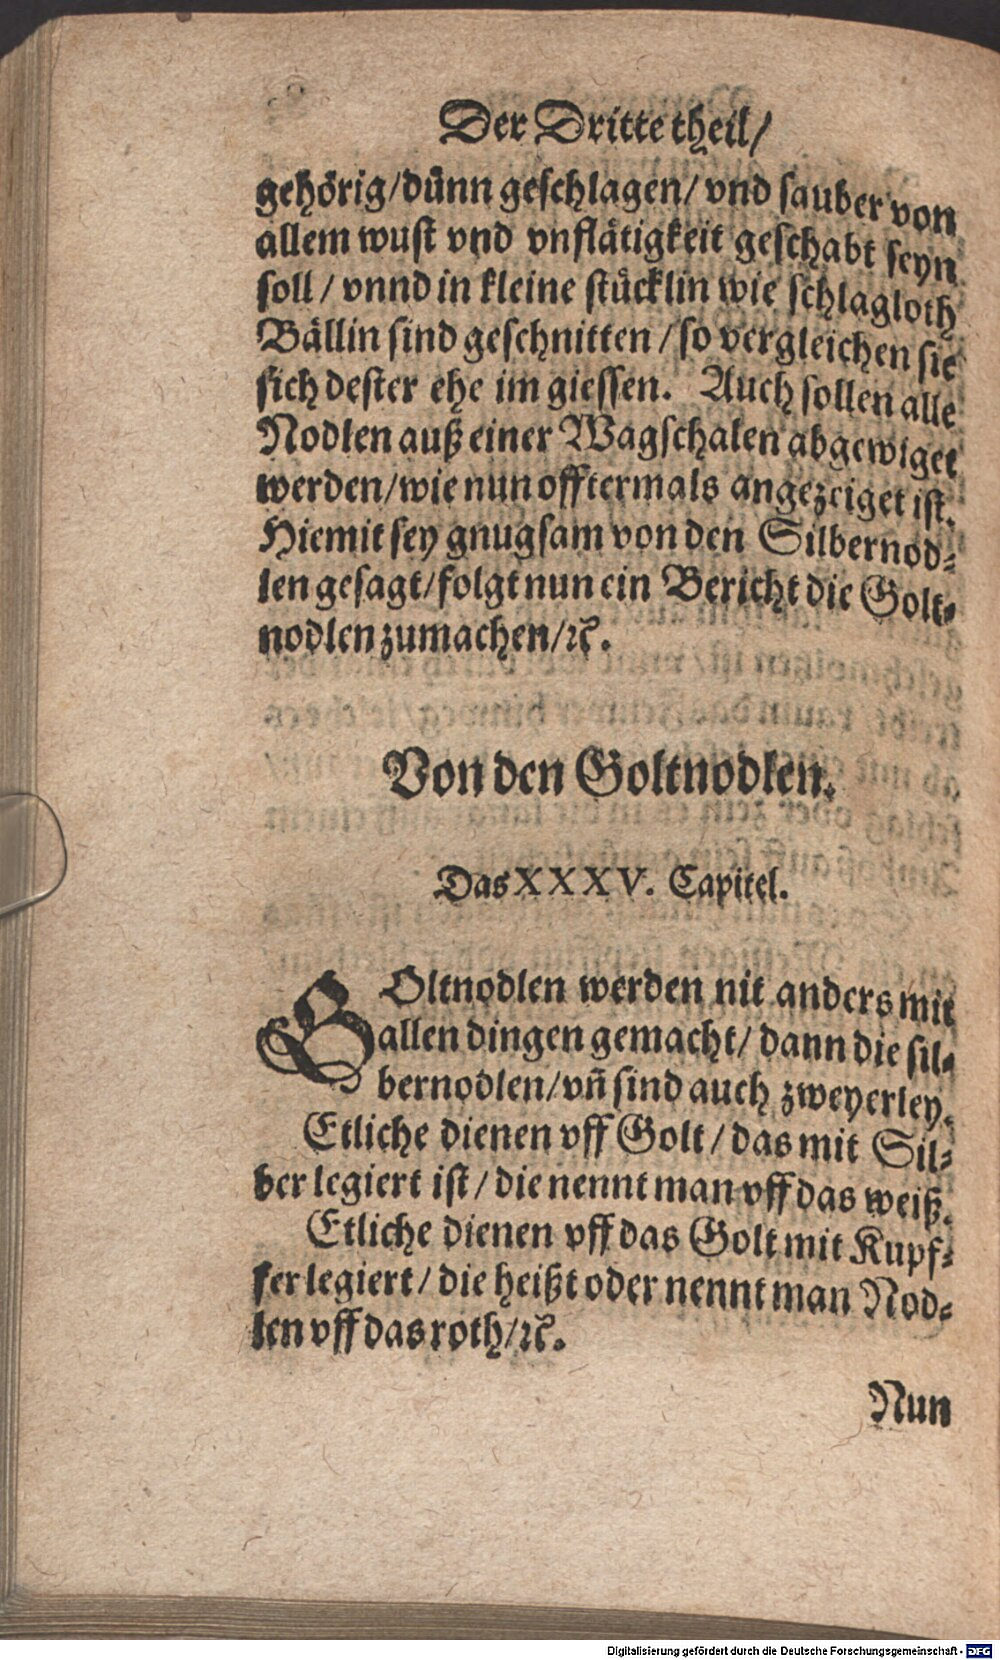 Der Dritte theil/
gehörig/dünn geschlagen/ vnd sauber von
allem wust vnd vnflätigkeit geschabt seyn
soll / vnnd in kleine stücklin wie schlagloth
Bällin sind geschnitten / so vergleichen sie
sich dester ehe im giessen. Auch sollen alle
Nodlen auß einer Wagschalen abgewiget
werden/wie nun offtermals angezeiget ist.
Hiemit sey gnugsam von den Silbernod⸗
len gesagt/folgt nun ein Bericht die Golt⸗
nodlen zumachen/ꝛc.
Von den Goltnodlen.
Das XXXV. Capitel.
GOltnodlen werden nit anders mit
allen dingen gemacht/ dann die sil⸗
bernodlen/vñ sind auch zweyerley.
Etliche dienen vff Golt / das mit Sil⸗
ber legiert ist / die nennt man vff das weiß.
Etliche dienen vff das Golt mit Kupf⸗
fer legiert / die heißt oder nennt man Nod⸗
len vff das roth/ꝛc.
Nun
Digitalisierung gefördert durch die Deutsche Forschungsgemeinschaft - DFG